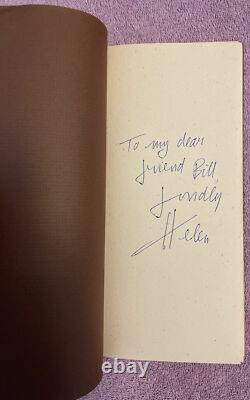 To my dear
friend Bill,
fondly
Helen
ebth.com